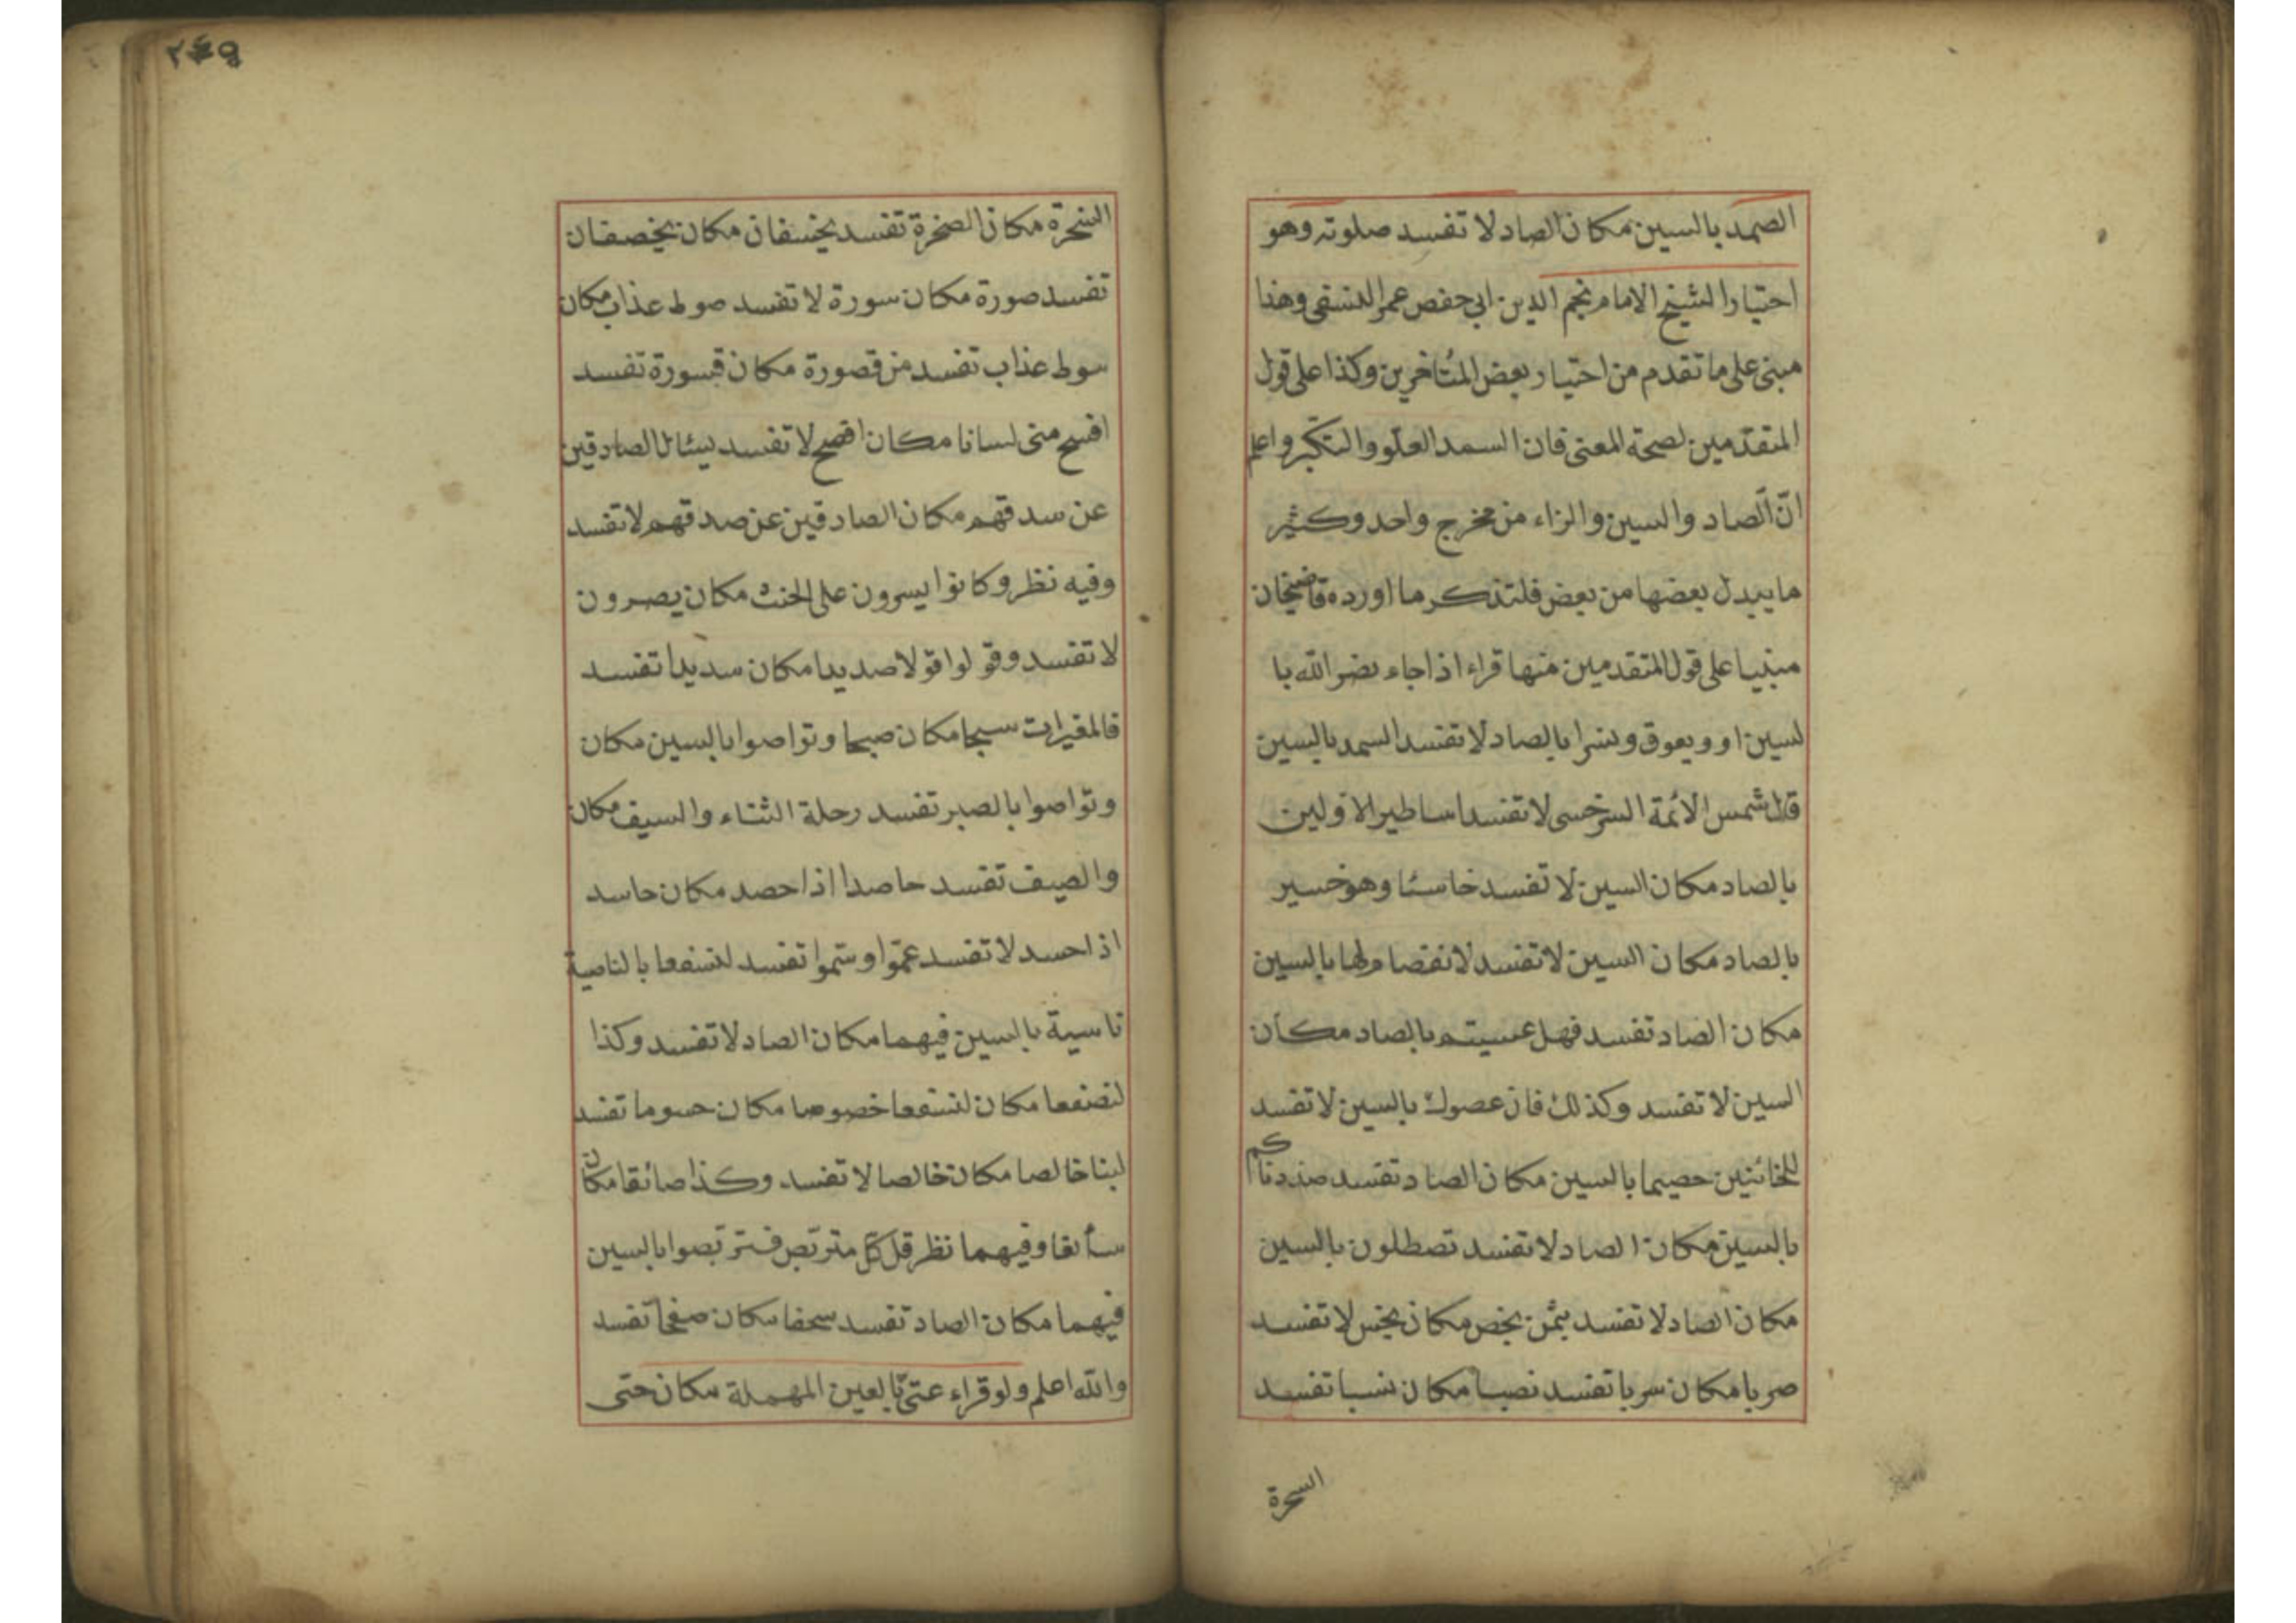 الصمد بالسين مكان الصاد لا تفسد صلوته وهو
احتيار الشيخ الامام نجم الدين ابى حفص عمر النسفى وهذا
مبنى على ما تقدم من احتيار بعض المتاخرين وكذا على قول
المتقدّمين لصحة المعنى فان السمد العلو والتكبر واعلم
انّ الصاد والسين والزاء من مخرج واحد وكثير
ما يبدل بعضها من بعض فلتذكر ما اورده قاضيخان
مبنيا على قول المتقدمين منها قراء اذا جاء نصر الله با
لسين او ويعوق ونسرا بالصاد لا تفسد السمد بالسين
قال شمس الائمة السرخسى لا تفسد اساطير الاولين
بالصاد مكان السين لا تفسد خاسئا وهو حسير
بالصاد مكان السين لا تفسد لانفصام لها بالسين
مكان الصاد تفسد فهل عسيتم بالصاد مكان
السين لا تفسد وكذلك فان عصوك بالسين لا تفسد
للخائنين حصيما بالسين مكان الصاد تفسد صددناكم
بالسين مكان الصاد لا تفسد تصطلون بالسين
مكان الصاد لا تفسد بثمن بخص مكان بخس لا تفسد
صربا مكان سربا تفسد نصبا مكان نسبا تفسد
السحرة
٢٤٩
السخرة مكان الصخرة تفسد يخسفان مكان يخصفان
تفسد صورة مكان سورة لا تفسد صوط عذاب مكان
سوط عذاب تفسد من قصورة مكان قسورة تفسد
افسح منى لسانا مكان افصح لا تفسد ليسئل الصادقين
عن سدقهم مكان الصادقين عن صدقهم لا تفسد
وفيه نظر وكانوا يسرون على الحنث مكان يصرون
لا تفسد وقولوا قولا صديدا مكان سديدا تفسد
فالمغيرات سبحا مكان صبحا وتواصوا بالسين مكان
وتواصوا بالصبر تفسد رحلة الشتاء والسيف مكان
والصيف تفسد حاصدا اذا حصد مكان حاسد
اذا حسد لا تفسد عمّوا وسمّوا تفسد لنسفعا بالناصية
ناسية بالسين فيهما مكان الصاد لا تفسد وكذا
لنصفعا مكان لنسفعا خصوصا مكان حسوما تفسد
لبنا خالصا مكان خالصا لا تفسد وكذا صائقا مكان
سائقا وفيهما نظر قل كلّ متربّص فتربّصوا بالسين
فيهما مكان الصاد تفسد سحفا مكان صفحا تفسد
والله اعلم ولو قراء عتىّ بالعين المهملة مكان حتى